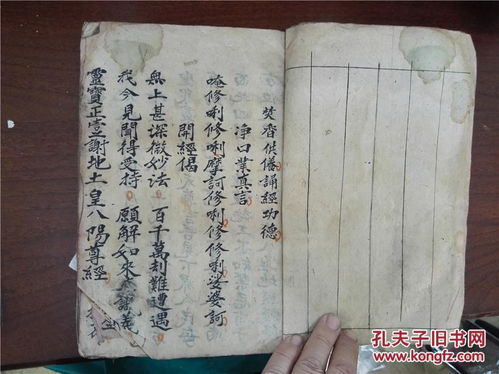 焚香供儀誦經功德
淨口業真言
唵修唎修唎摩訶修唎修修唎娑婆訶
開經偈
無上甚深微妙法 百千萬刼難遭遇
我今見聞得受持 願解如來
靈寶正壹謝地土皇八陽尊經
孔夫子旧书网
www.kongfz.com